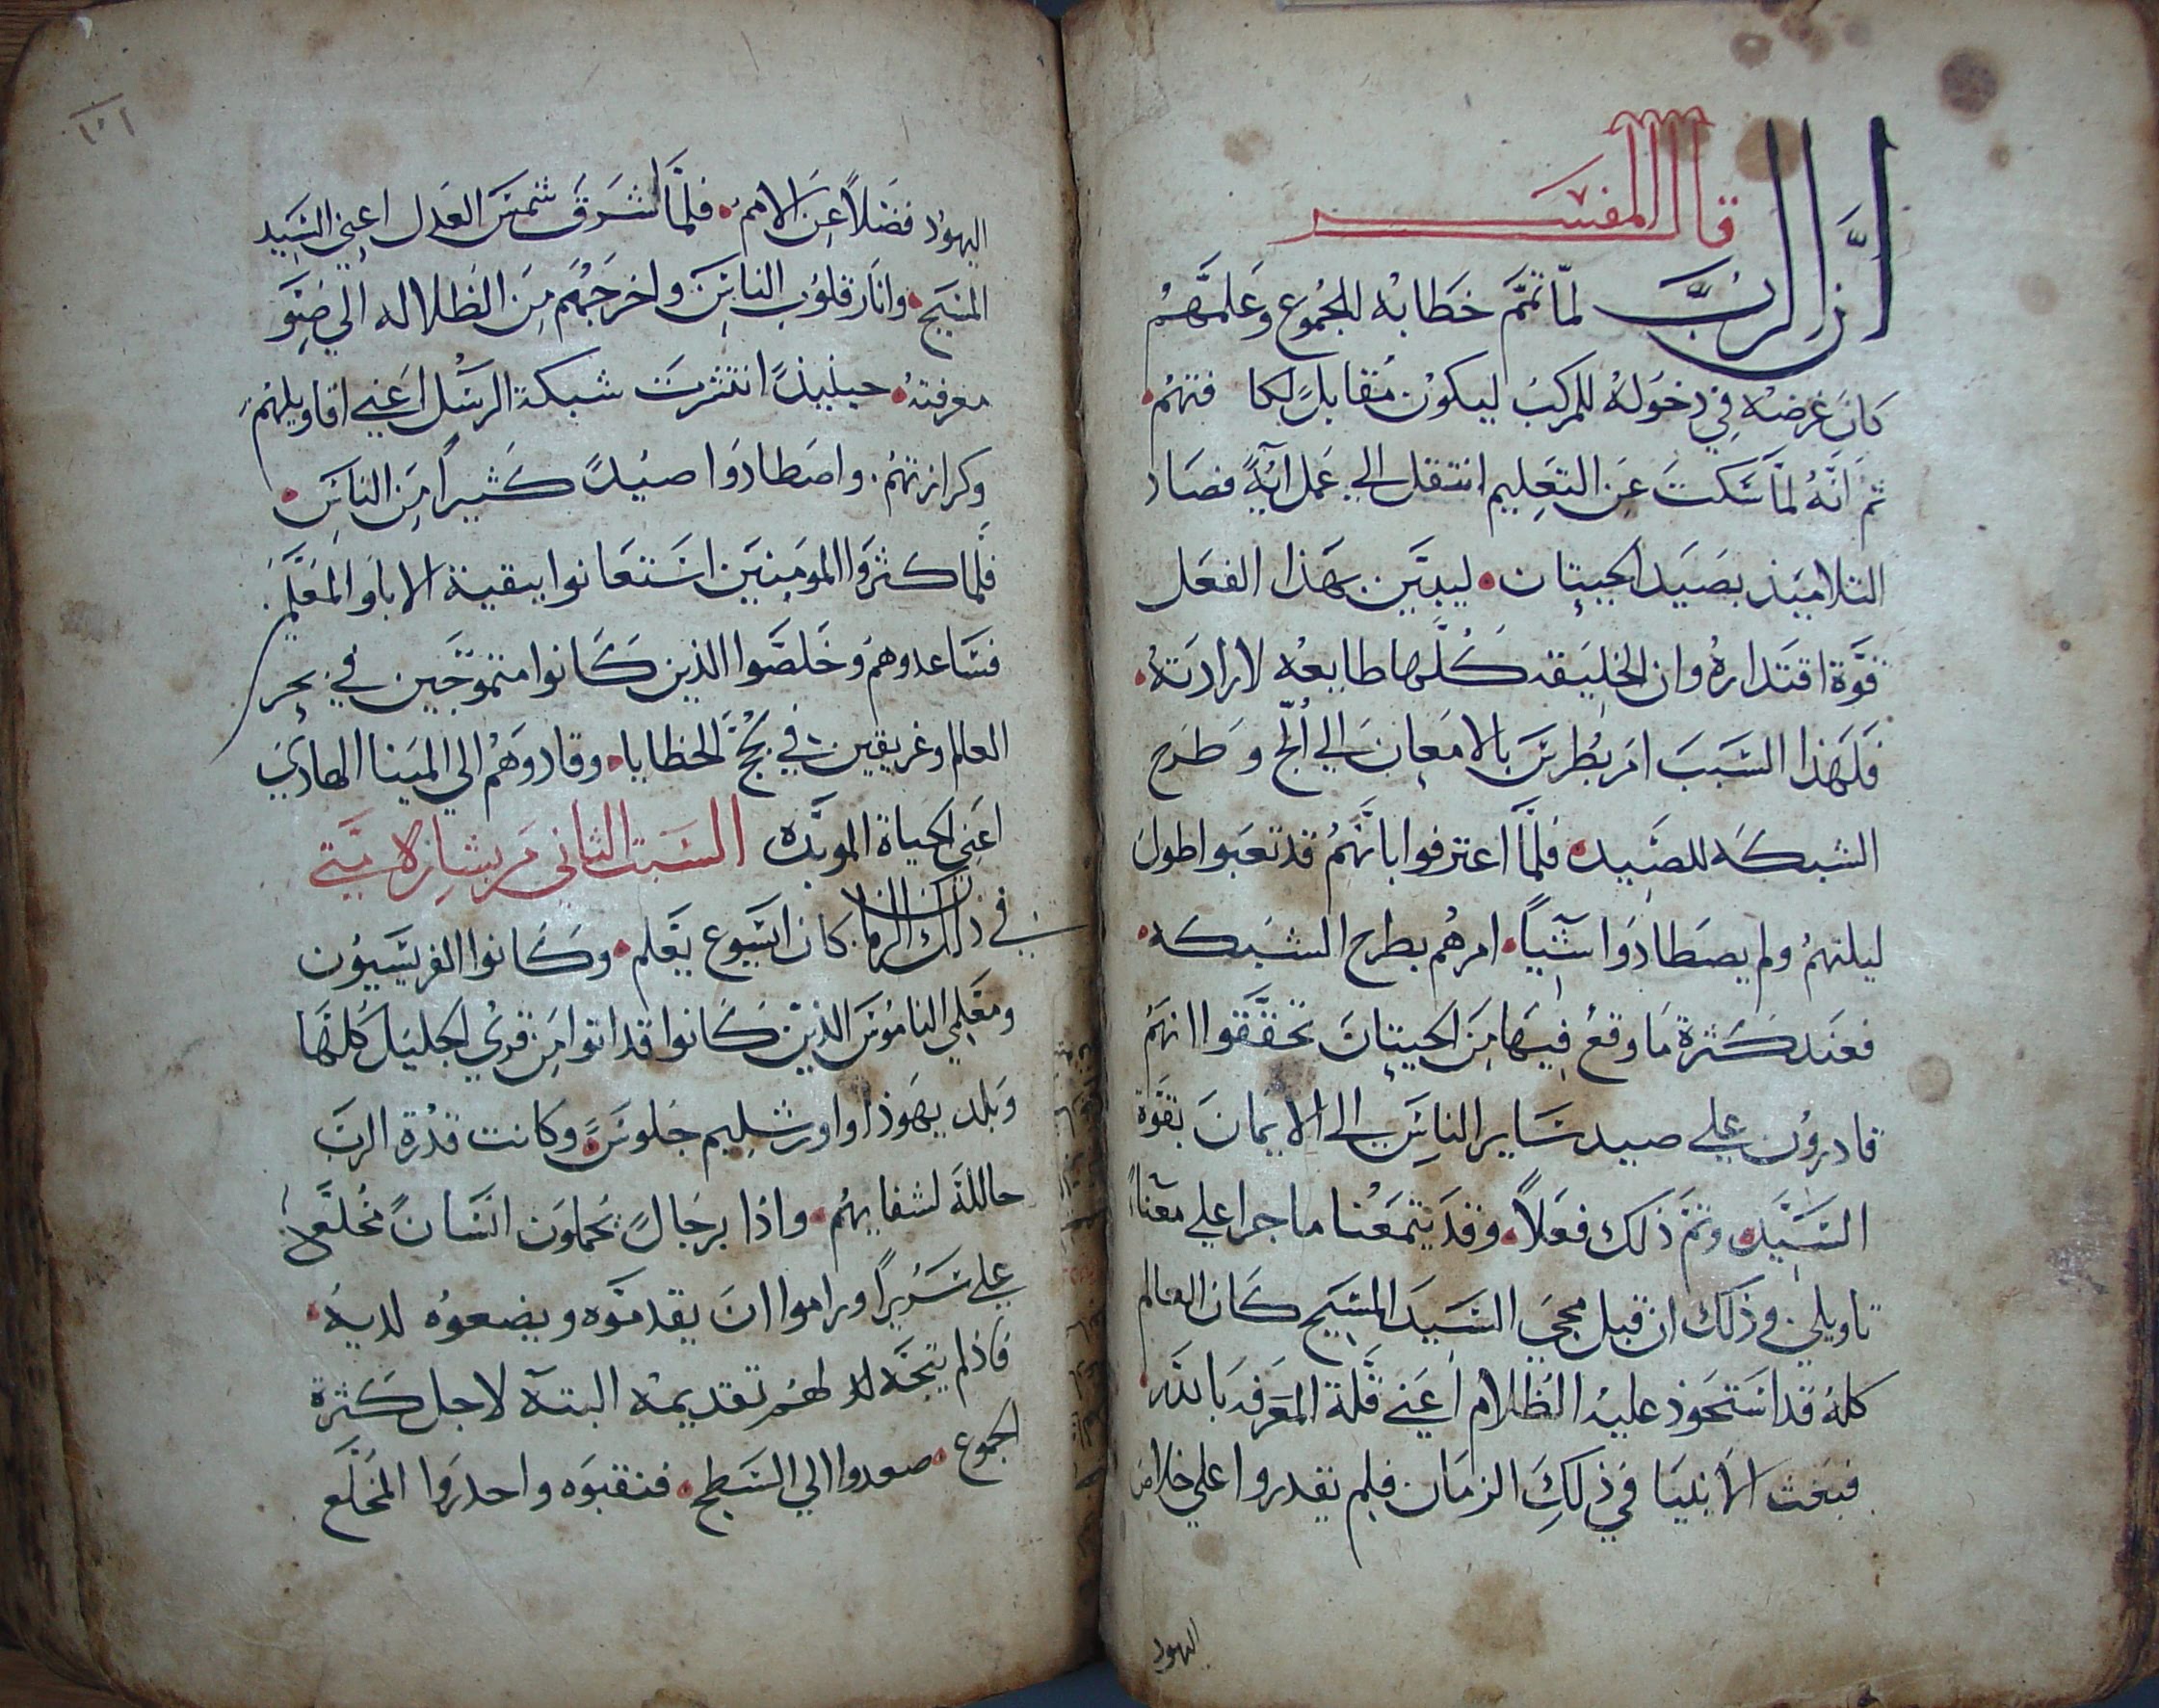 قال المفسر
ان الرب لما تمم خطابه للجموع وعلمهم
كان غرضه في دخوله للمركب ليكون مقابلاً لكافتهم
ثم انه لما سكت عن التعليم انتقل الي عمل آيةً فصاد
التلاميذ بصيد الحيتان ليبين بهذا الفعل
قوة اقتداره وان الخليقه كلها طايعه لارادته
فلهذا السبب امر بطرس بالامعان الي اللج وطرح
الشبكه للصيد فلما اعترفوا بانهم قد تعبوا طول
ليلتهم ولم يصطادوا شيياً امرهم بطرح الشبكه
فعند كثرة ما وقع فيها من الحيتان تحققوا انهم
قادرون علي صيد ساير الناس الي الايمان بقوة
السيد وتم ذلك فعلاً وقد يتمعنا ما جرا علي معناً
تاويلي وذلك ان قبل مجي السيد المسيح كان العالم
كله قد استحوذ عليه الظلام اعني قلة المعرفه بالله
فبعث الانبيا في ذلك الزمان فلم يقدروا علي خلاص
اليهود
١٠١
اليهود فضلاً عن الامم فلما اشرق شمس العدل اعني السيد
المسيح وانار قلوب الناس واخرجهم من الظلاله الي ضو
معرفته حينيذً انتشرت شبكة الرسل اعني اقاويلهم
وكرازتهم واصطادوا صيدً كثيراً من الناس
فلما كثروا المومنين استعانوا ببقية الابا والمعلمين
فساعدوهم وخلصوا الذين كانوا متموجين في بحر
العالم وغريقين في لجج الخطايا وقادوهم الي المينا الهادي
اعني الحياة الموبده السبت الثاني من بشارة متي
في ذلك الزمان كان ايسوع يعلم وكانوا الفريسيون
ومعلمي الناموس الذين كانوا قد اتوا من قري الجليل كلها
وبلد يهوذا واورشليم جلوسً وكانت قدرة الرب
حاللة لشفايهم واذا برجالً يحملون انسانً مخلعاً
علي سريراً وراموا ان يقدموه ويضعوه لديه
فاذ لم يتجه لهم تقديمه البتة لاجل كثرة
الجموع صعدوا الي السطح فنقبوه واحدروا المخلع